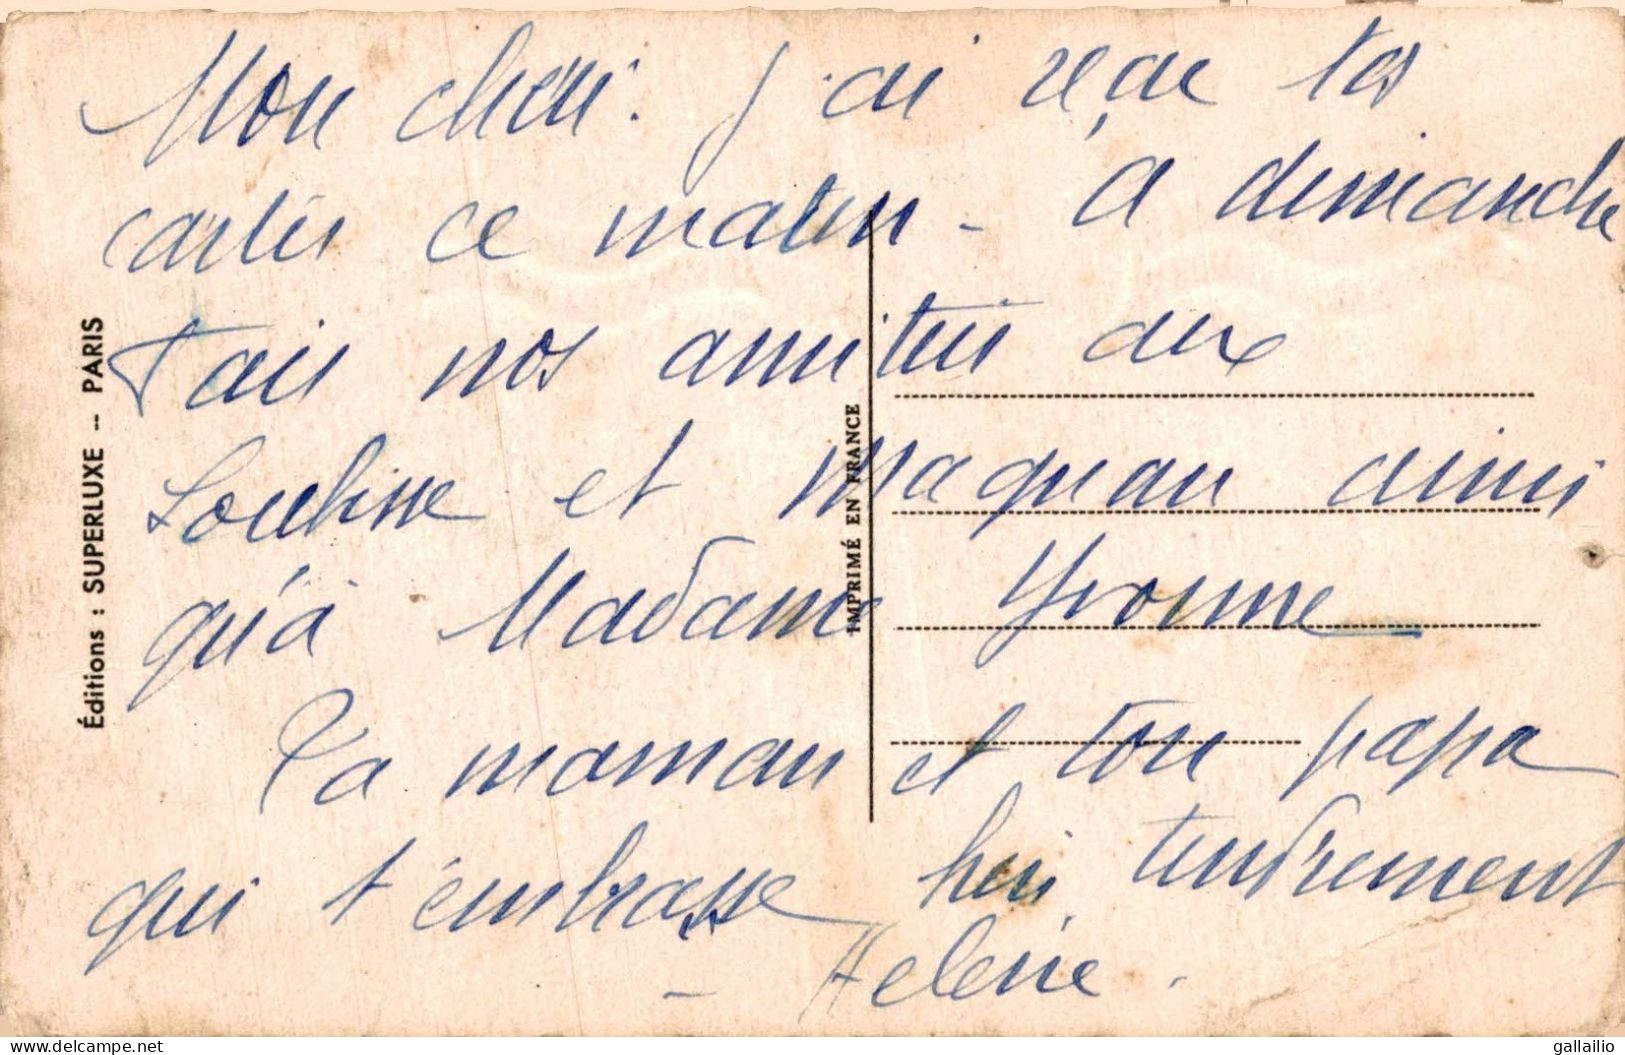 Mon chéri. j'ai reçue tes
cartes ce matin - a dimanche
Fais nos amitiés aux
et Maquau ainsi
qu'à Madame Yvonne
Ta maman et ton papa
qui t'embrasse tendrement
- Helene.
Éditions : SUPERLUXE -- PARIS
IMPRIMÉ EN FRANCE
delcampe.net
gallailio